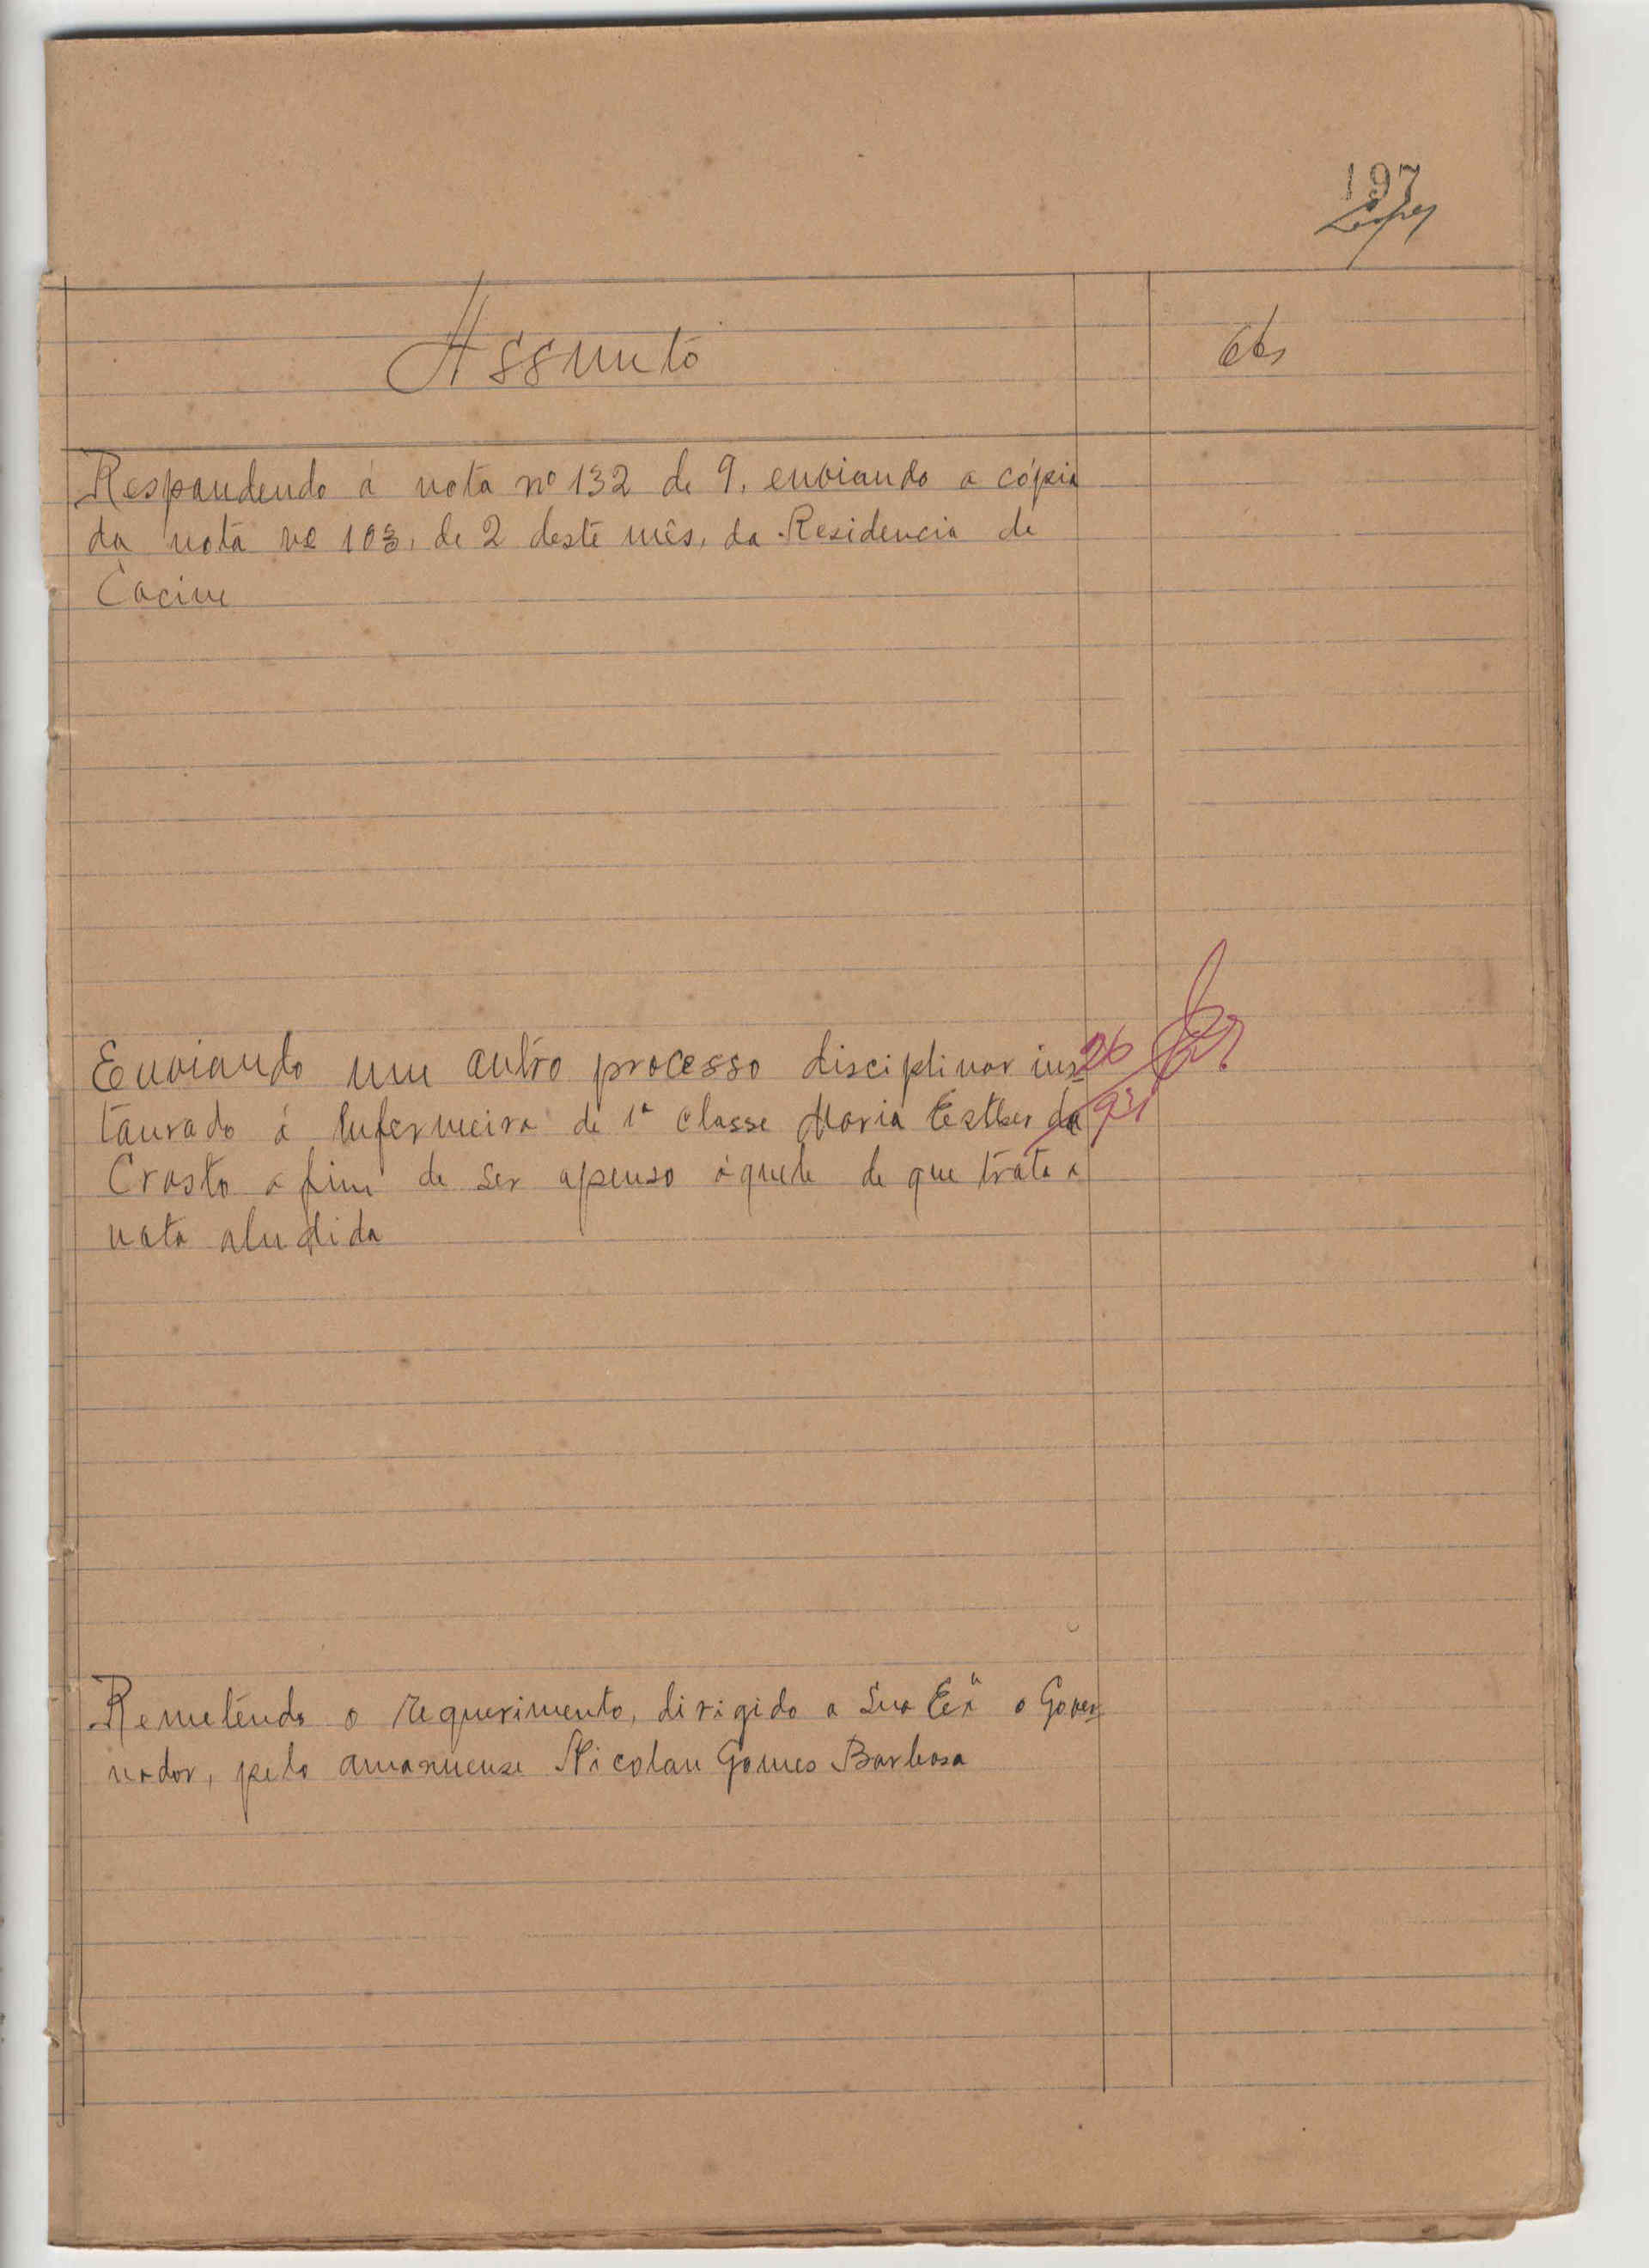 197
Lopes
Assunto
Obs
Respondendo á nota nº 132 de 9, enviando a cópia
da nota nº 103, de 2 deste mês, da Residencia de
Cacine
Enviando um outro processo disciplinar ins-
26
taurado á Enfermeira de 1ª classe Maria Esther da
931
Crasto a fim de ser apenso áquele de que trata a
nota aludida
Remetendo o requerimento, dirigido a Sua Exª o Gover-
nador, pelo amanuense Nicolau Gomes Barbosa